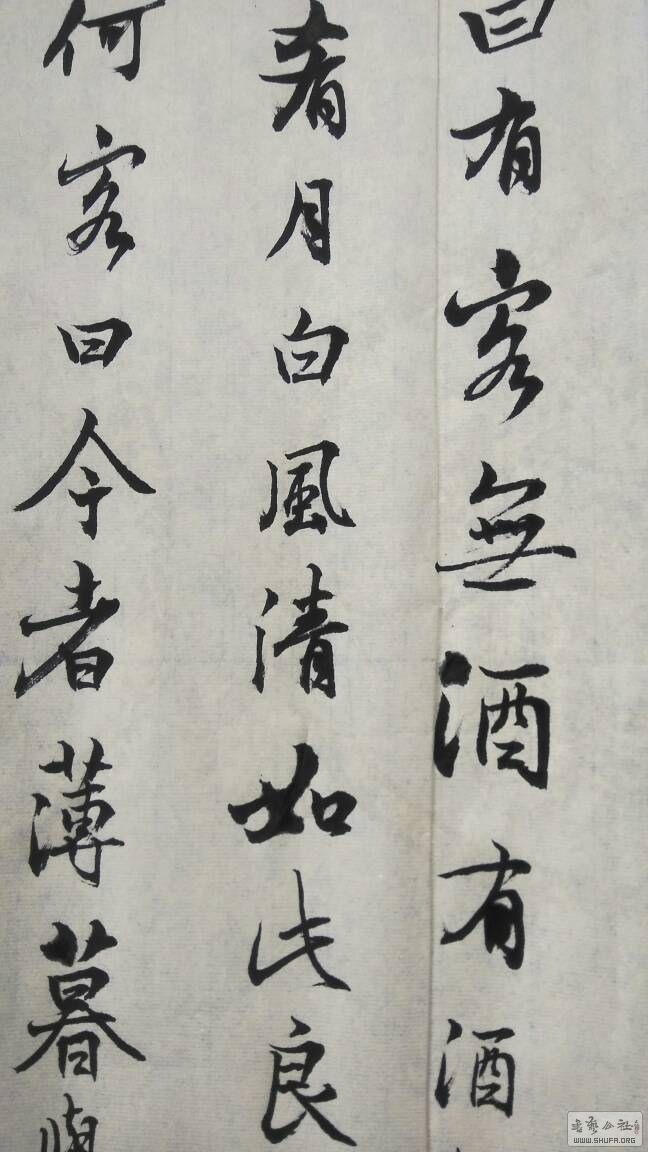 曰有客無酒有酒
肴月白風清如此良
何客曰今者薄暮
WWW.SHUFA.ORG